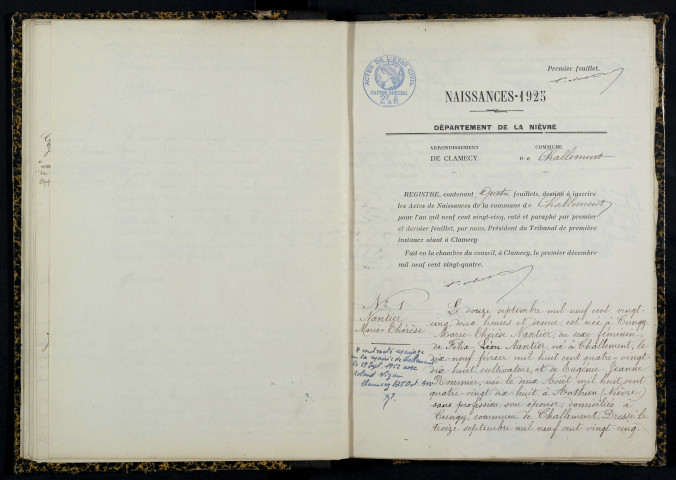 Premier feuillet.
ACTES DE L'ÉTAT CIVIL
PAPIER SPÉCIAL
NAISSANCES-1925
DÉPARTEMENT DE LA NIÈVRE
ARRONDISSEMENT
DE CLAMECY
COMMUNE
DE Challement
REGISTRE, contenant quatre feuillets, destiné à inscrire
les Actes de Naissances de la commune de Challement
pour l'an mil neuf cent vingt-cinq, coté et paraphé par premier
et dernier feuillet, par nous, Président du Tribunal de première
instance séant à Clamecy.
Fait en la chambre du conseil, à Clamecy, le premier décembre
mil neuf cent vingt-quatre.
N° 1
Nantier
Marie-Thérèse
a contracté mariage
à la mairie de Challement
le Sept. 1952 avec
Roland
Clamecy Oct.
Le douze septembre mil neuf cent vingt-
cinq deux heures et demie est née à Cungy
Marie-Thérèse Nantier, du sexe féminin
de Félix Léon Nantier, né à Challement, le
dix neuf février mil huit cent quatre-vingt-
dix huit, cultivateur, et de Eugénie Jeanne
née le deux Août mil huit cent
quatre-vingt dix huit à (Nièvre)
sans profession, son épouse, domiciliés à
Cungy, commune de Challement. Dressé le
treize septembre mil neuf cent vingt-cinq.